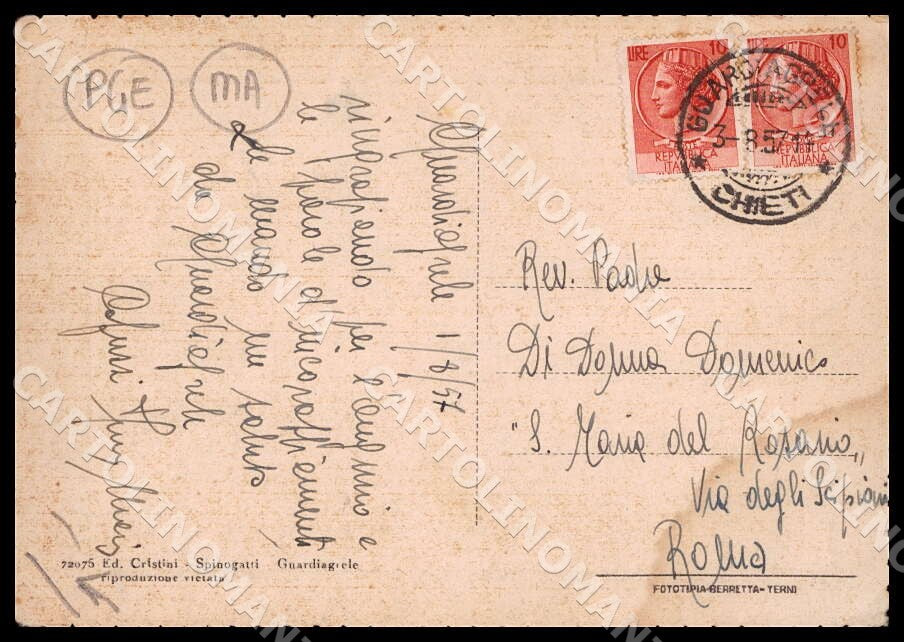 PGE
MA
LIRE 10
REPVBBLICA
ITALIANA
LIRE 10
REPVBBLICA
ITALIANA
GUARDIAGRELE
3-8.57.11
* CHIETI *
Guardiagrele 1/8/57
ringraziando per
le parole d'incoraggiamento
Le mando un saluto
da Guardiagrele
Rev. Padre
Di Donna Domenico
"S. Maria del Rosario"
Via degli Scipioni
Roma
72075 Ed. Cristini - Spinogatti Guardiagrele
riproduzione vietata
FOTOTIPIA BERRETTA - TERNI
CARTOLINOMANIA